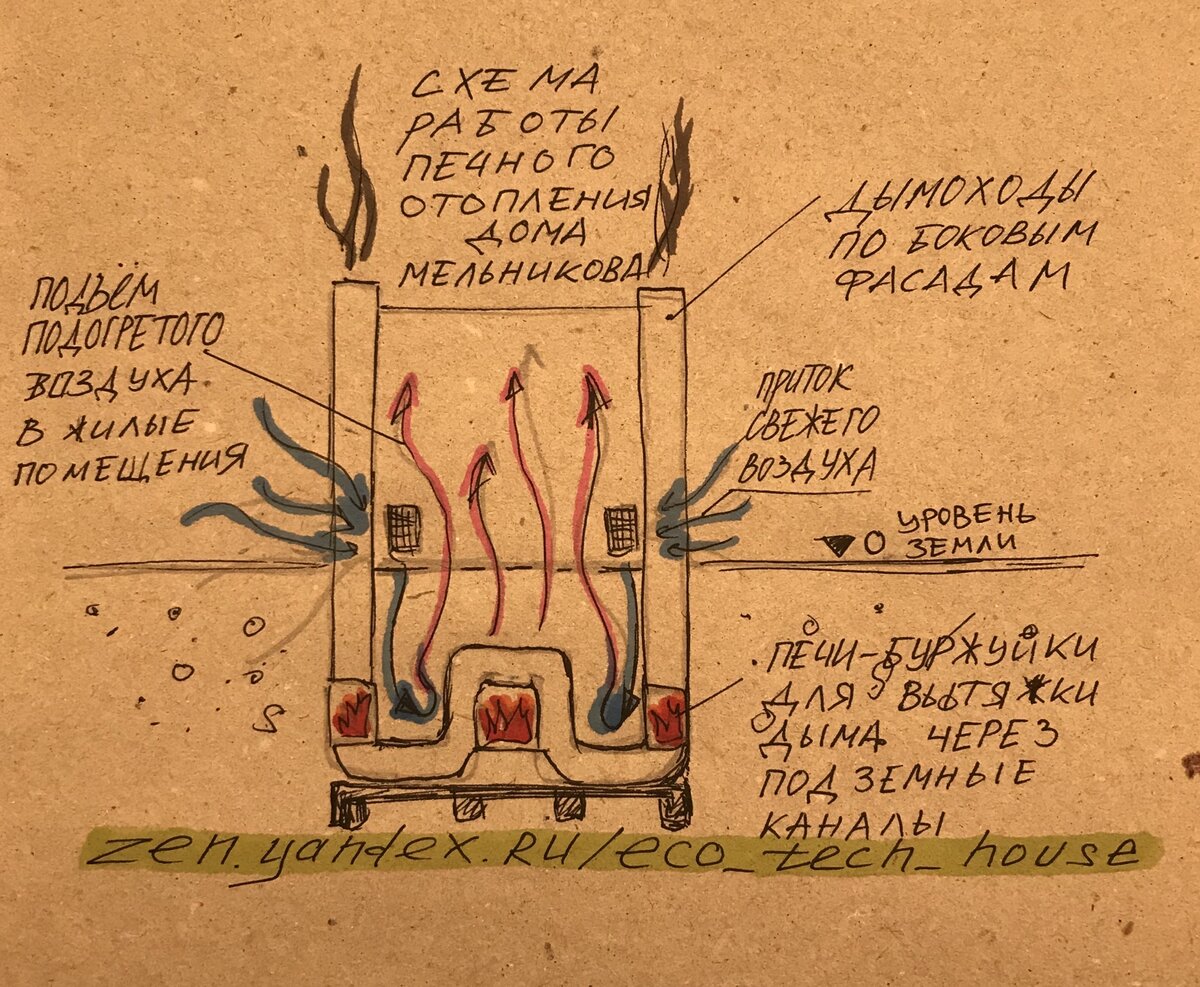 СХЕМА
РАБОТЫ
ПЕЧНОГО
ОТОПЛЕНИЯ
ДОМА
МЕЛЬНИКОВА
ДЫМОХОДЫ
ПО БОКОВЫМ
ФАСАДАМ
ПОДЪЁМ
ПОДОГРЕТОГО
ВОЗДУХА
В ЖИЛЫЕ
ПОМЕЩЕНИЯ
ПРИТОК
СВЕЖЕГО
ВОЗДУХА
0 УРОВЕНЬ
ЗЕМЛИ
ПЕЧИ-БУРЖУЙКИ
ДЛЯ ВЫТЯЖКИ
ДЫМА ЧЕРЕЗ
ПОДЗЕМНЫЕ
КАНАЛЫ
zen.yandex.RU/eco_tech_house